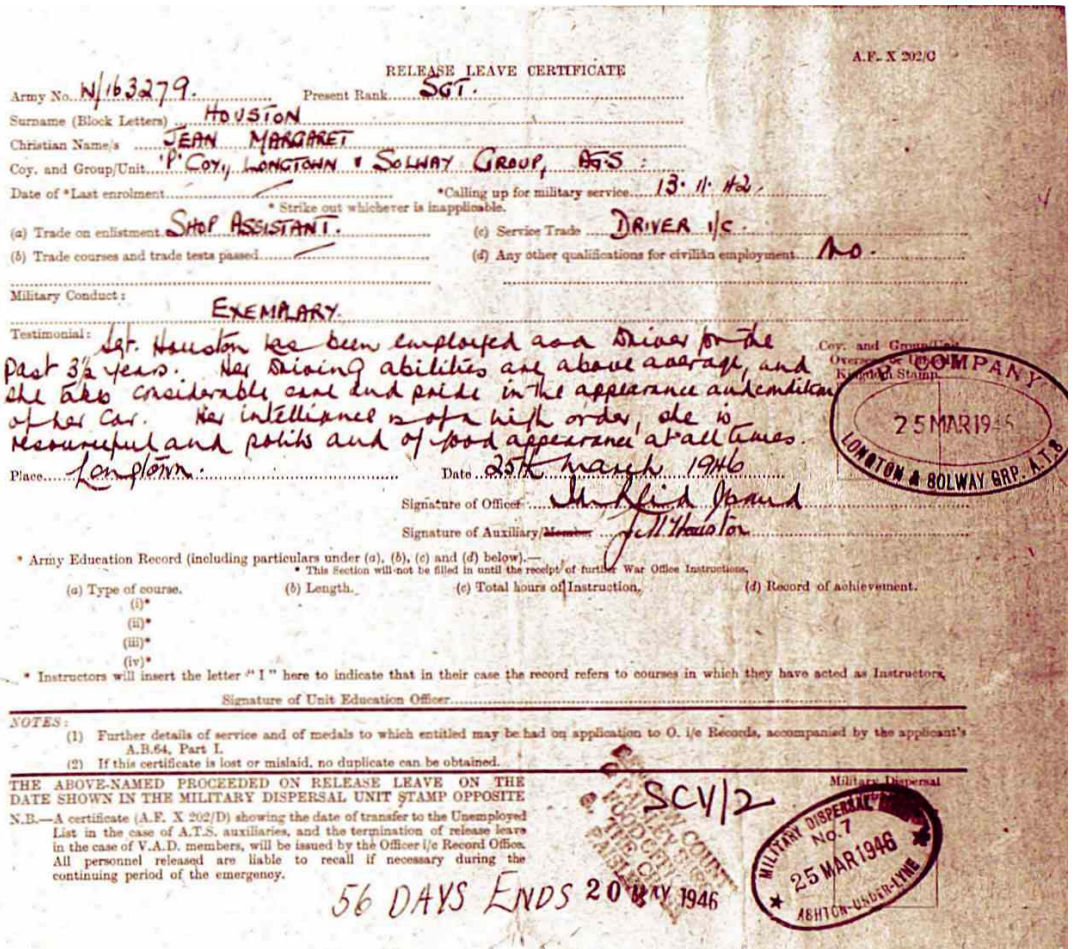 A.F. X 202/G
RELEASE LEAVE CERTIFICATE
Army No. W/163279. Present Rank SGT.
Surname (Block Letters) HOUSTON
Christian Name/s JEAN MARGARET
Coy. and Group/Unit 'P' COY., LONGTOWN & SOLWAY GROUP, ATS :
Date of *Last enrolment *Calling up for military service 13.11.42.
* Strike out whichever is inapplicable.
(a) Trade on enlistment SHOP ASSISTANT. (c) Service Trade DRIVER I/C.
(b) Trade courses and trade tests passed (d) Any other qualifications for civilian employment No.
Military Conduct :
EXEMPLARY.
Testimonial : Sgt. Houston has been employed as a Driver for the
past 3½ years. Her Driving abilities are above average, and
she takes considerable care and pride in the appearance and condition
of her car. Her intelliance is of a high order, she is
resourceful and polite and of good appearance at all times.
Coy. and Group/Unit
Overseas or United
Kingdom Stamp
COMPANY
25 MAR 1946
LONGTON & SOLWAY GRP. A.T.S
Place Longtown. Date 25th March 1946
Signature of Officer
Signature of Auxiliary/Member J M Houston
* Army Education Record (including particulars under (a), (b), (c) and (d) below).—
* This Section will not be filled in until the receipt of further War Office Instructions.
(a) Type of course. (b) Length. (c) Total hours of Instruction. (d) Record of achievement.
(i)*
(ii)*
(iii)*
(iv)*
* Instructors will insert the letter "I" here to indicate that in their case the record refers to courses in which they have acted as Instructors.
Signature of Unit Education Officer
NOTES :
(1) Further details of service and of medals to which entitled may be had on application to O. i/c Records, accompanied by the applicant's
A.B.64, Part I.
(2) If this certificate is lost or mislaid, no duplicate can be obtained.
THE ABOVE-NAMED PROCEEDED ON RELEASE LEAVE ON THE
DATE SHOWN IN THE MILITARY DISPERSAL UNIT STAMP OPPOSITE
N.B.—A certificate (A.F. X 202/D) showing the date of transfer to the Unemployed
List in the case of A.T.S. auxiliaries, and the termination of release leave
in the case of V.A.D. members, will be issued by the Officer i/c Record Office.
All personnel released are liable to recall if necessary during the
continuing period of the emergency.
SCV/2
Military Dispersal
MILITARY DISPERSAL
No. 7
25 MAR 1946
ASHTON-UNDER-LYNE
56 DAYS ENDS 20 MAY 1946